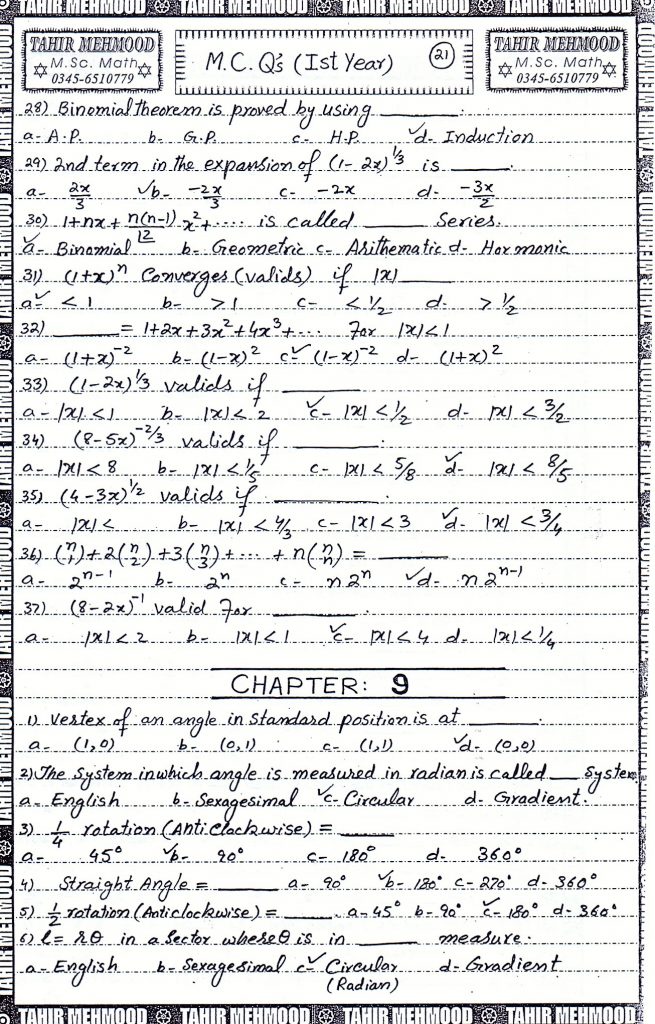 TAHIR MEHMOOD TAHIR MEHMOOD TAHIR MEHMOOD TAHIR MEHMOOD
TAHIR MEHMOOD
M.Sc. Math
0345-6510779
M.C.Q's (Ist Year) 21
TAHIR MEHMOOD
M.Sc. Math
0345-6510779
28) Binomial theorem is proved by using ______.
a- A.P. b- G.P. c- H.P ✓d- Induction
29) 2nd term in the expansion of (1-2x)^1/3 is ______.
a- 2x/3 ✓b- -2x/3 c- -2x d- -3x/2
30) 1+nx+ n(n-1)/|2 x²+.... is called ______ Series.
✓a- Binomial b- Geometric c- Arithematic d- Hormonic
31) (1+x)^n Converges (valids) if |x| ______
a✓ <1 b- >1 c- <1/2 d- >1/2
32) ______ = 1+2x+3x²+4x³+... For |x|<1
a- (1+x)^-2 b- (1-x)^2 c✓ (1-x)^-2 d- (1+x)^2
33) (1-2x)^1/3 valids if ______
a- |x|<1 b- |x|<2 ✓c- |x|<1/2 d- |x|<3/2
34) (8-5x)^-2/3 valids if ______.
a- |x|<8 b- |x|<1/5 c- |x|<5/8 ✓d- |x|<8/5
35) (4-3x)^1/2 valids if ______.
a- |x|< b- |x|<4/3 c- |x|<3 ✓d- |x|<3/4
36) (n 1)+2(n 2)+3(n 3)+...+n(n n) = ______
a- 2^n-1 b- 2^n c- n2^n ✓d- n2^n-1
37) (8-2x)^-1 valid For ______.
a- |x|<2 b- |x|<1 ✓c- |x|<4 d- |x|<1/4
CHAPTER: 9
1) Vertex of an angle in standard position is at ______.
a- (1,0) b- (0,1) c- (1,1) ✓d- (0,0)
2) The System in which angle is measured in radian is called ___ System
a- English b- Sexagesimal ✓c- Circular d- Gradient.
3) 1/4 rotation (Anti clackwise) = ______
a- 45° ✓b- 90° c- 180° d- 360°
4) Straight Angle = ______ a- 90° ✓b- 180° c- 270° d- 360°
5) 1/2 rotation (Anticlockwise) = ______. a- 45° b- 90° ✓c- 180° d- 360°
6) l= rθ in a Sector where θ is in ______ measure.
a- English b- Sexagesimal c✓ Circular d- Gradient
(Radian)
TAHIR MEHMOOD TAHIR MEHMOOD TAHIR MEHMOOD TAHIR MEHMOOD